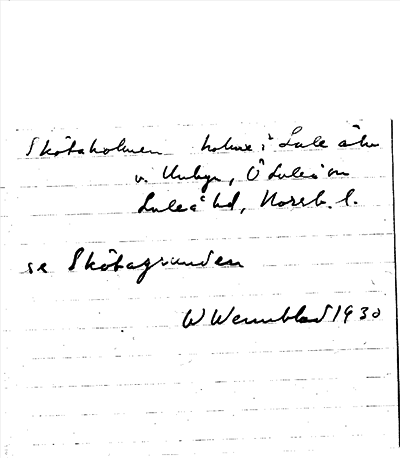 Skötaholmen holme i Lule älv
v. Unbyn, Ö Luleå sn
Luleå hd, Norrb. l.
se Skötagrunden
W Wennblad 1930